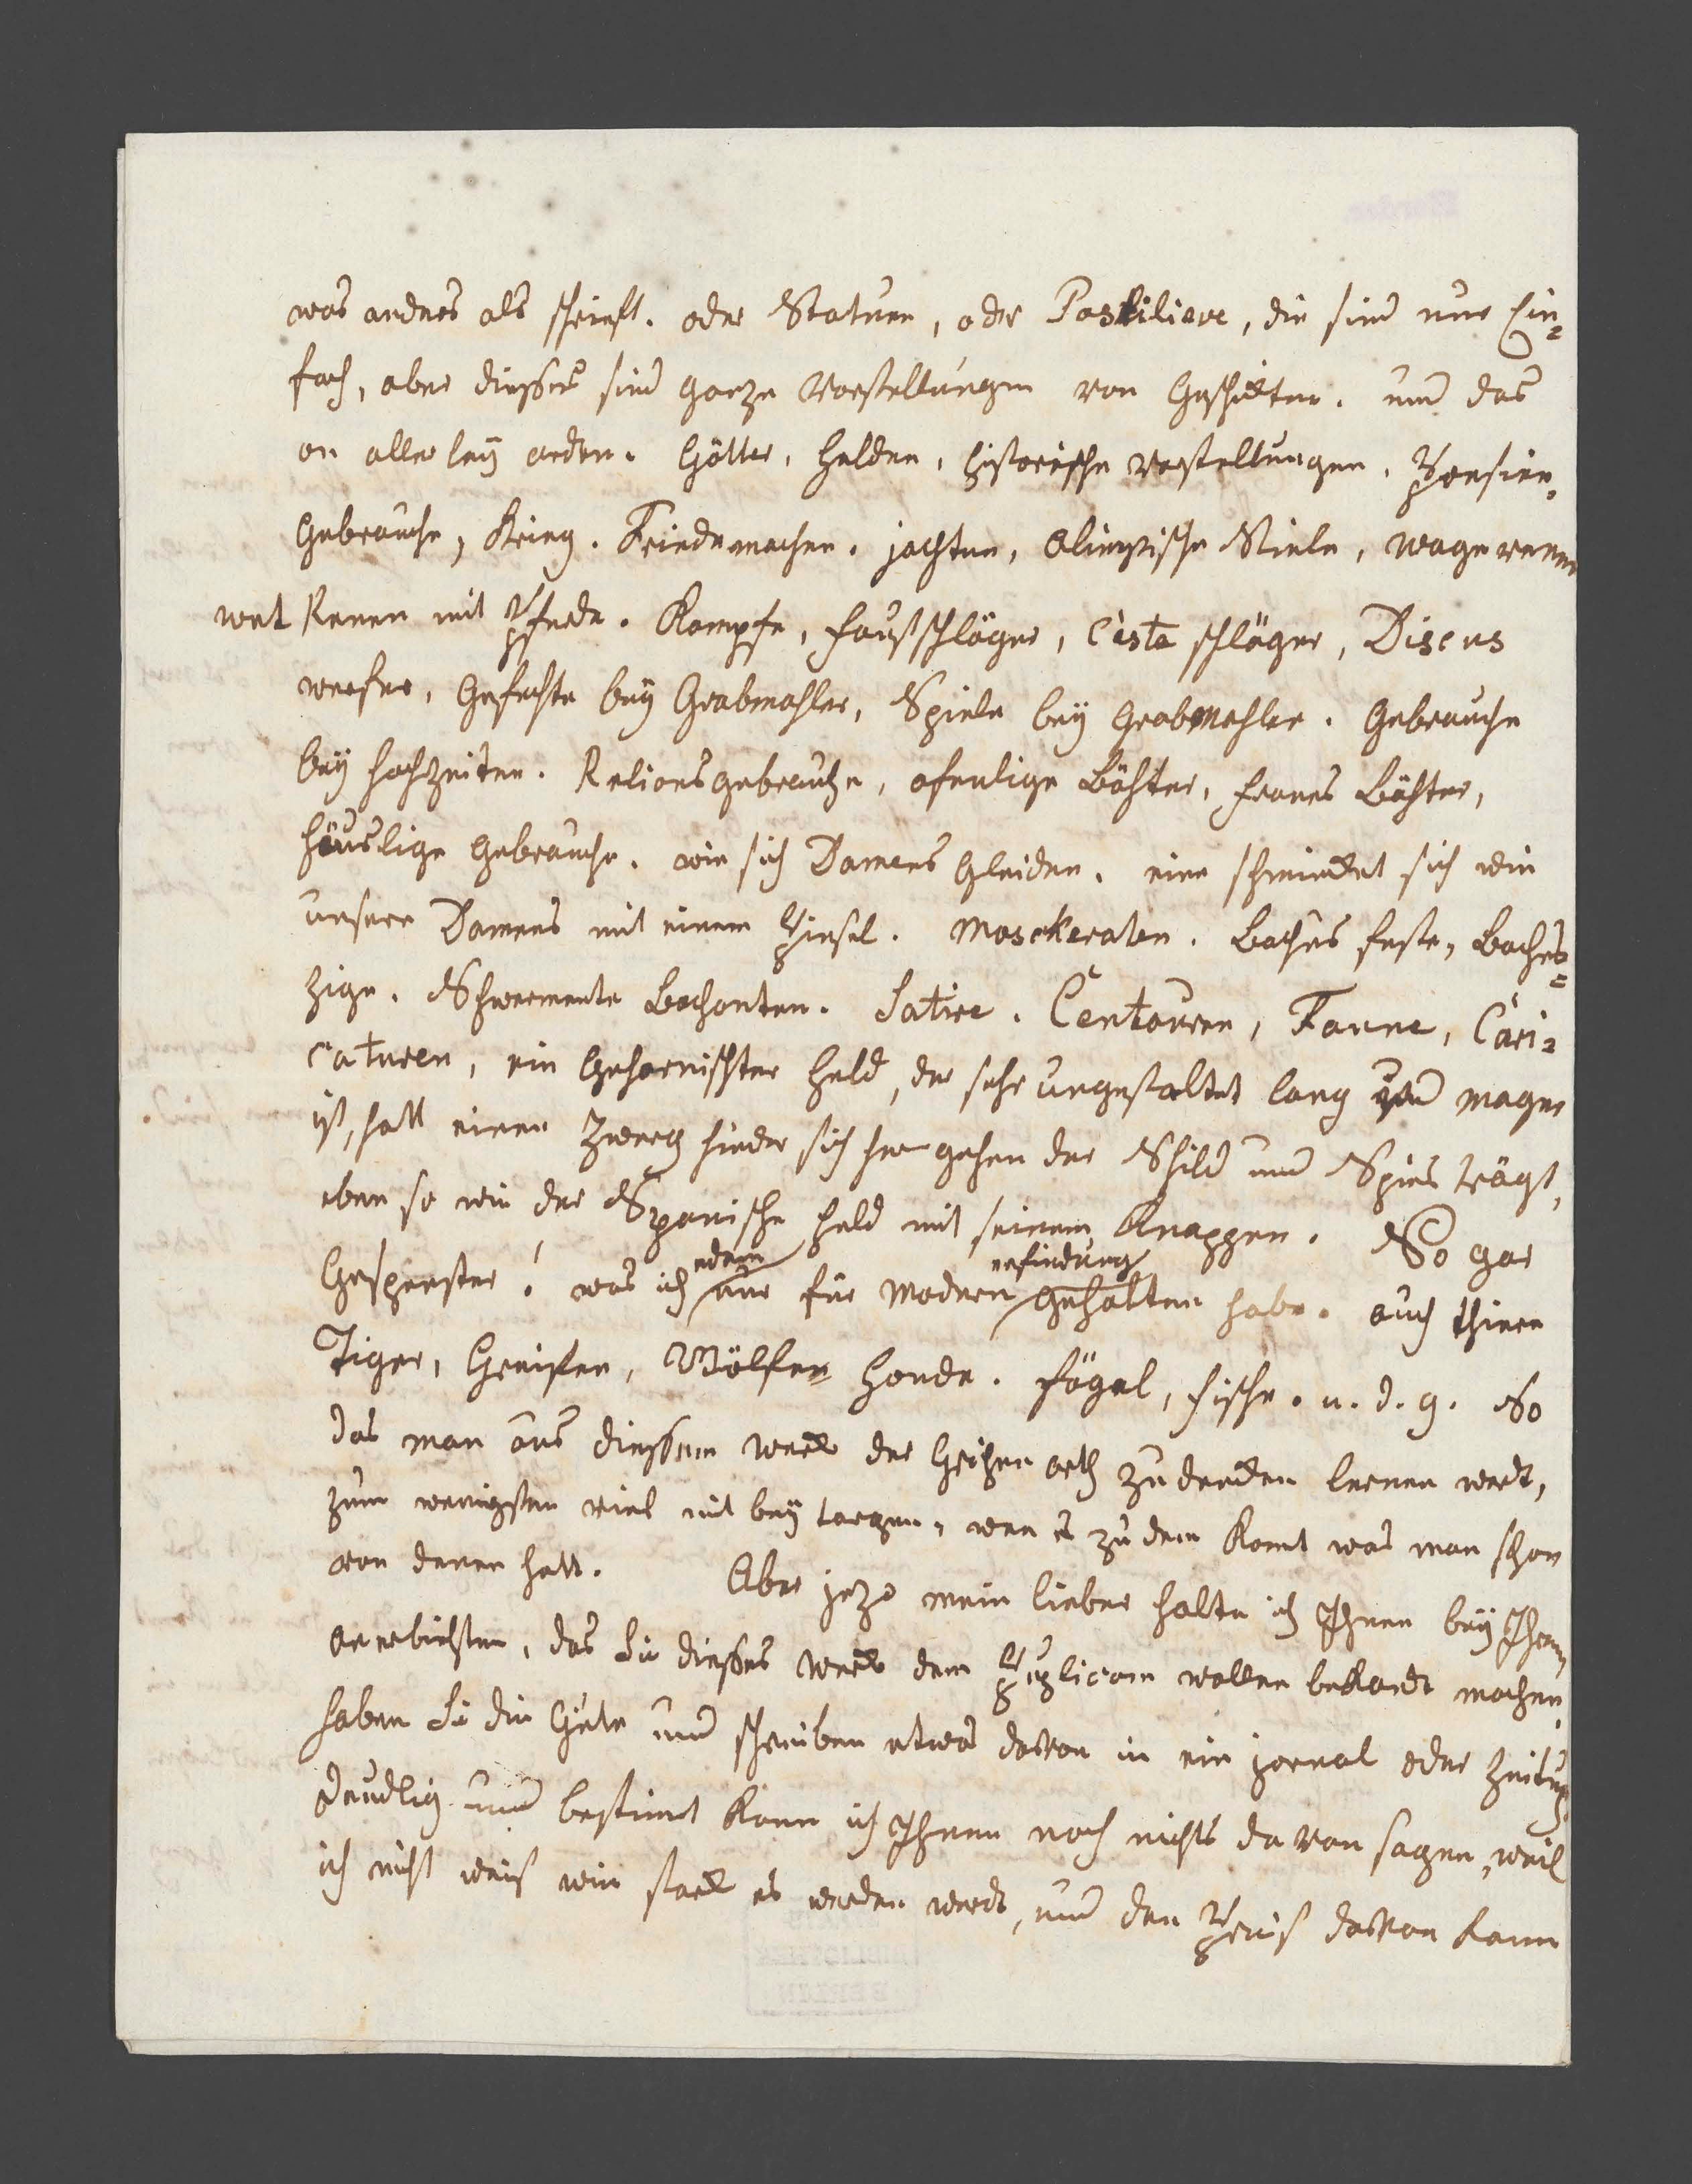 was andres als schrieft. oder Statuen, oder Passiliere, die sind nur Ein=
fach, aber diesses sind ganze Vorstellungen von Geschichten. und das
an aller leÿ arden. Götter, Helden, historische Vorstellungen. Persien.
Gebrauche, Krieg. Friedemachen. jachten, Olimpische Spiele, wage rennen
wet Renen mit Pferde. Kampfe, faustschläger, Ceste schläger, Discus
werfer, Gefechte beÿ Grabmahler, Spiele beÿ Grabmahler. Gebrauche
beÿ hochzeiten. Relionsgebrauche, ofenlige Bähter, frauens Bähter,
häuslige Gebrauche. wie sich Damens Gleiden. eine schmincket sich wie
unsere Damens mit einem Pinsel. Masckeraten. Bachus feste, Bachus=
zige. Schwermente Bachanten. Satire. Centauren, Faune, Cari=
caturen, ein Geharnischter Held, der sehr ungestaltet lang und mager
ist, hatt einen Zwerg hinder sich her gehen der Schild und Spies trägt,
eben so wie der Spanische Held mit seinem Knappen. So gar
Gespenster! was ich edem nur für Modern erfindung gehalten habe. auch thiere
Tiger, Greifen, Wölfen Honde. fögel, fische. u. d. g. So
das man aus diessem werck der Grichen arth zu dencken lernen werd,
zum wenigsten viel mit beÿ tragen, wen es zu dem Komt was man schon
von denen hatt. Aber jezo mein lieber halte ich Ihnen beÿ Ihrem
anerbiehten, das Sie diesses werck dem Puplicom wollen bekandt machen.
haben Sie die Güte und schreiben etwas davon in ein jornal oder Zeitung
Deudlig und bestimt kann ich Ihnen noch nichts da von sagen, weil
ich nicht weis wie starck es werden werd, und den Preis davon kann